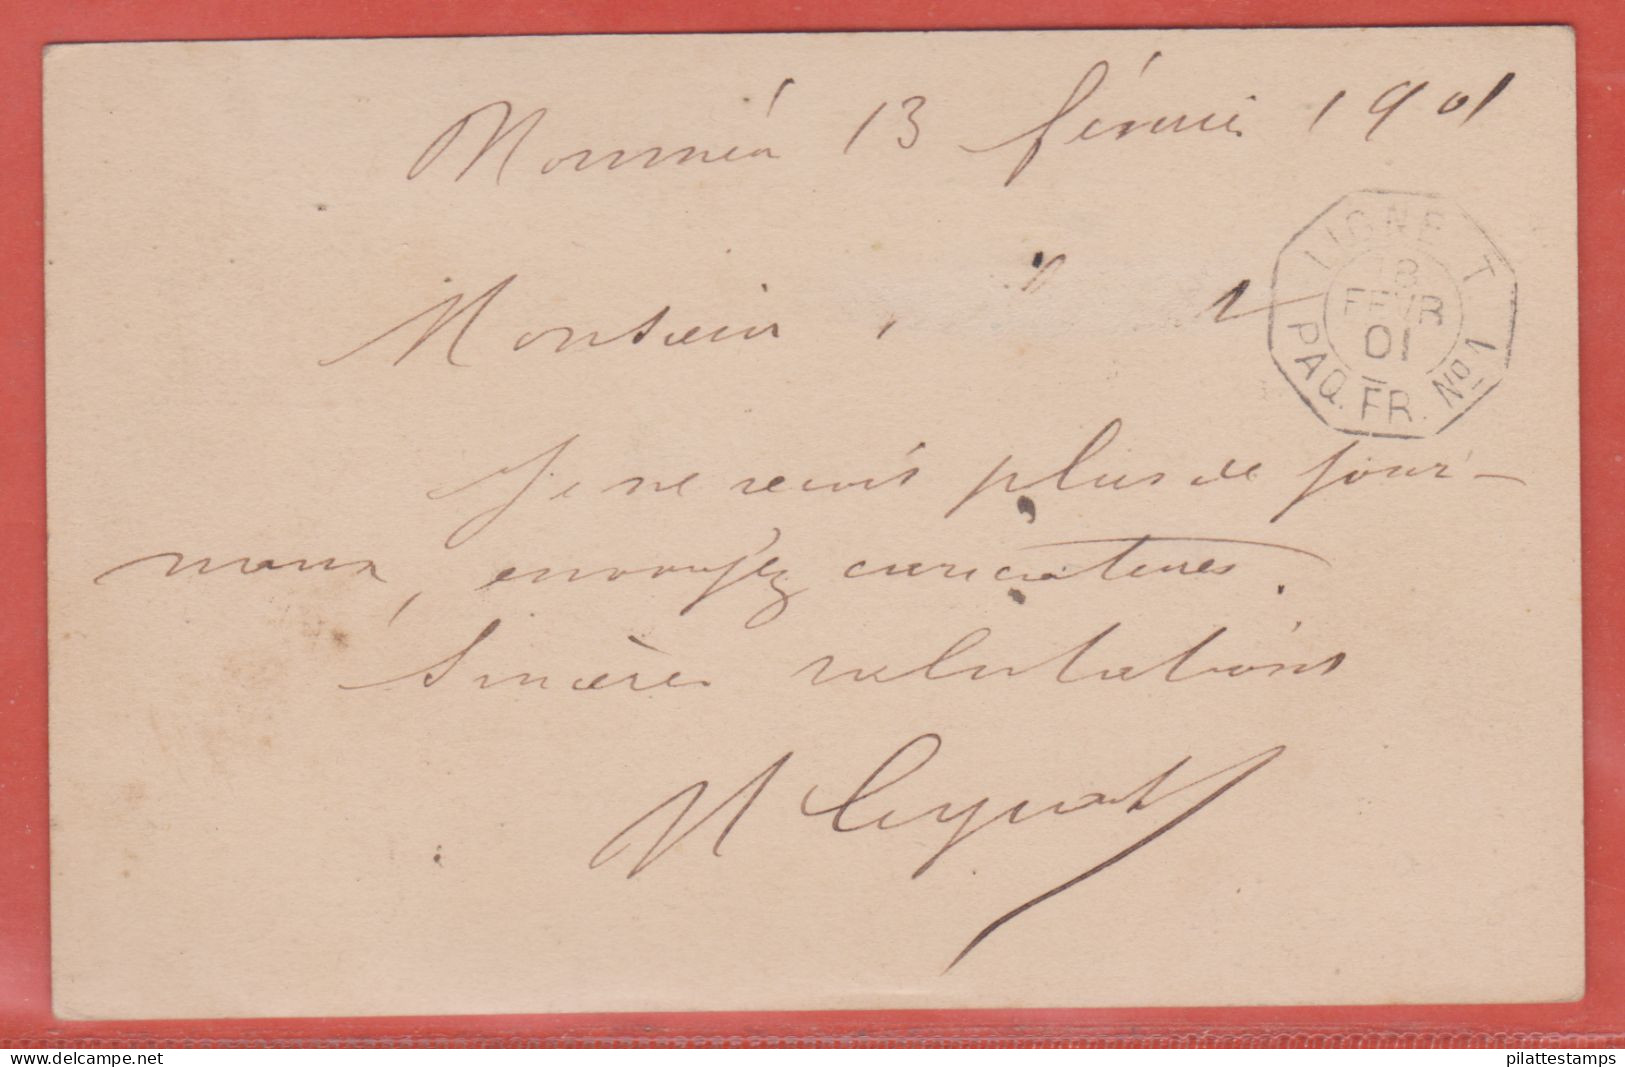 Nouméa 13 février 1901
Monsieur,
LIGNE T.
18
FEVR
01
PAQ. FR. Nº 1
Je ne reçois plus de jour-
naux, envoyez caricatures.
Sincères salutations
delcampe.net
pilattestamps